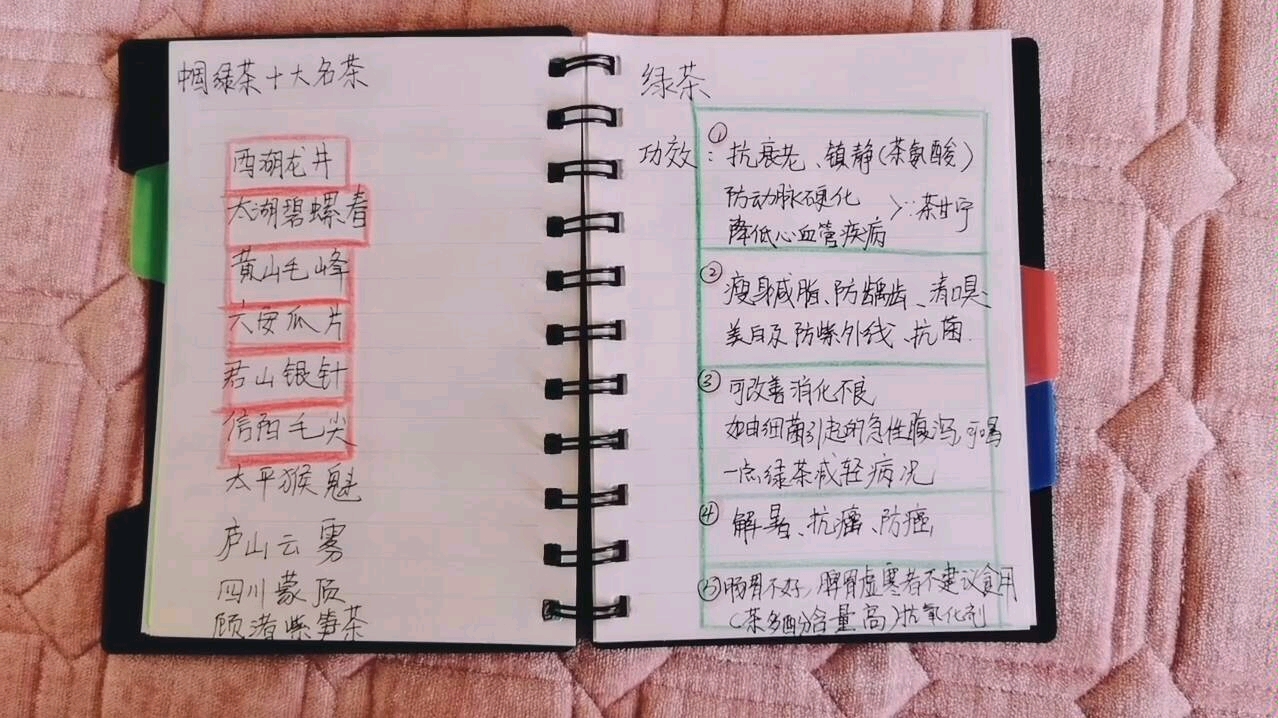 中国绿茶十大名茶
西湖龙井
太湖碧螺春
黄山毛峰
六安瓜片
君山银针
信阳毛尖
太平猴魁
庐山云雾
四川蒙顶
顾渚紫笋茶
绿茶
功效：①抗衰老、镇静（茶氨酸）
防动脉硬化
降低心血管疾病 >∵茶甘宁
②瘦身减脂、防龋齿、清口臭
美白及防紫外线、抗菌.
③可改善消化不良
如由细菌引起的急性腹泻,可喝
一点绿茶减轻病况
④解暑、抗癌、防癌,
⑤肠胃不好,脾胃虚寒者不建议食用
（茶多酚含量高）抗氧化剂